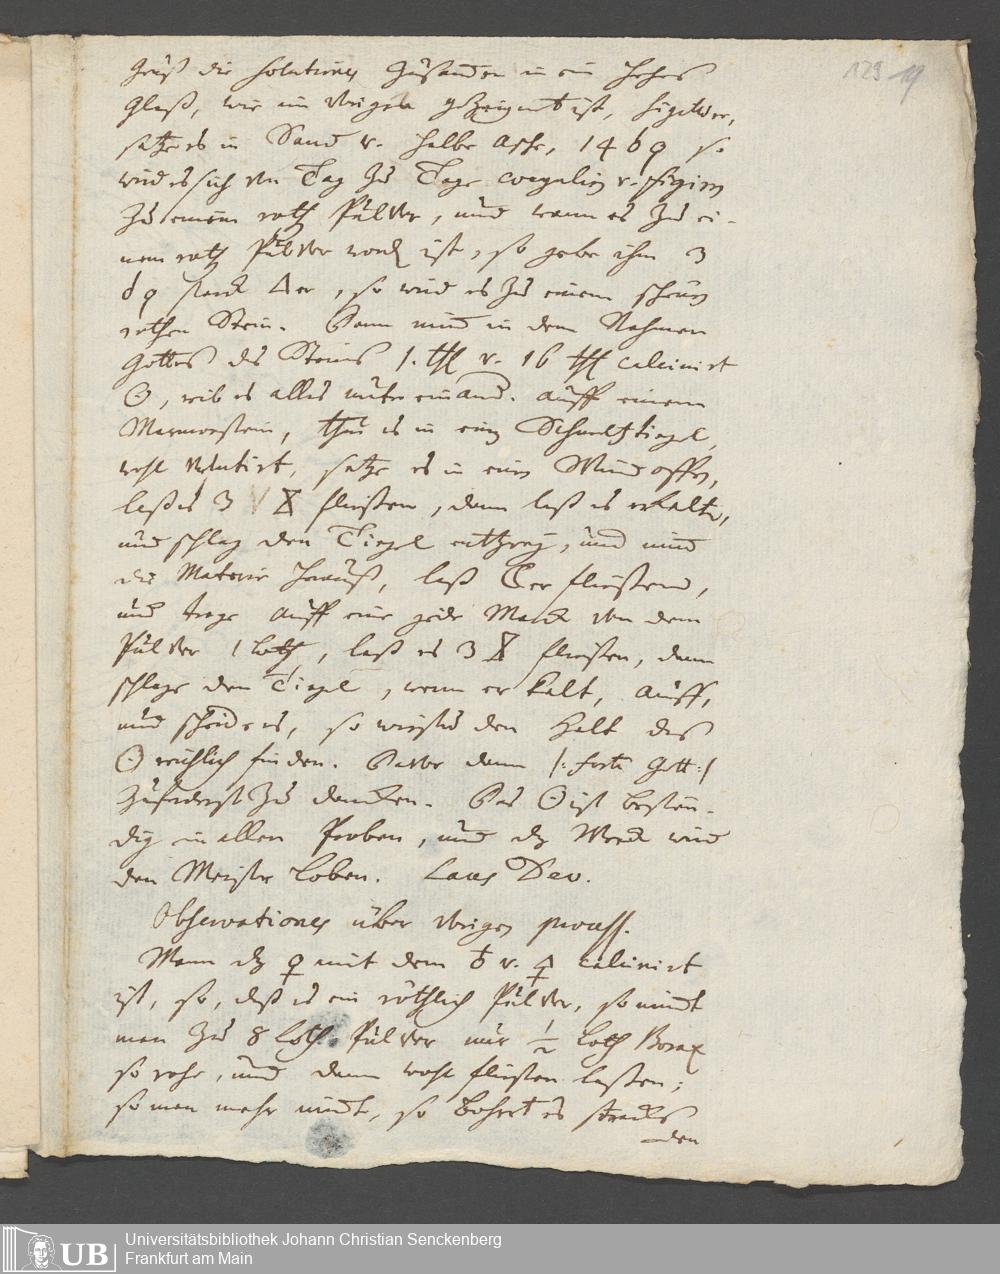 129 19
gieß die solutiones zusammen in ein hohes
Glaß, wie im vorigen gezeiget ist, sigillir,
setze es in Sand v. halbe Asche, 14 d g so
wird es sich von Tag zu Tage coagulir v. figirn
zu einem roth Pulver, und wann es zu ei-
nem roth Pulver word ist, so gebe ihm 3
d g starck △er, so wird es zu einem schönen
rothen Stein. Dann nimb in dem Nahmen
Gottes des Steins 1. th v. 16 th calcinirt
☉, reib es alles unter einand. auff einem
Marmorstein, thu es in ein Schmeltztiegel,
wohl verlutirt, setze es in ein Windoffen,
laß es 3 fließen, dann laß es erkalten,
und schlag den Tiegel entzwey, und nimb
die Materie herauß, laß ☾er fließend,
und trage auff eine jede Marck von dem
Pulver 1 Loth, laß es 3 fließen, dann
schlage den Tiegel, wenn er kalt, auff,
und scheide es, so wirstu den Halt des
☉ reichlich finden. Davor dann /: forte Gott :/
zuforderst zu dancken. Das ☉ ist bestän-
dig in allen Proben, und dz Werck wird
den Meister loben. Laus Deo.
Observationes über vorigen process.
Wann dz ♀ mit dem ♁ v. 🜍 calcinirt
ist, so, daß es ein röthlich Pulver, so nimbt
man zu 8 Loth Pulver nur ½ Loth Borax
so rohe, und dann wohl fließen lassen;
so man mehr nimbt, so bohret es
den
UB
Universitätsbibliothek Johann Christian Senckenberg
Frankfurt am Main